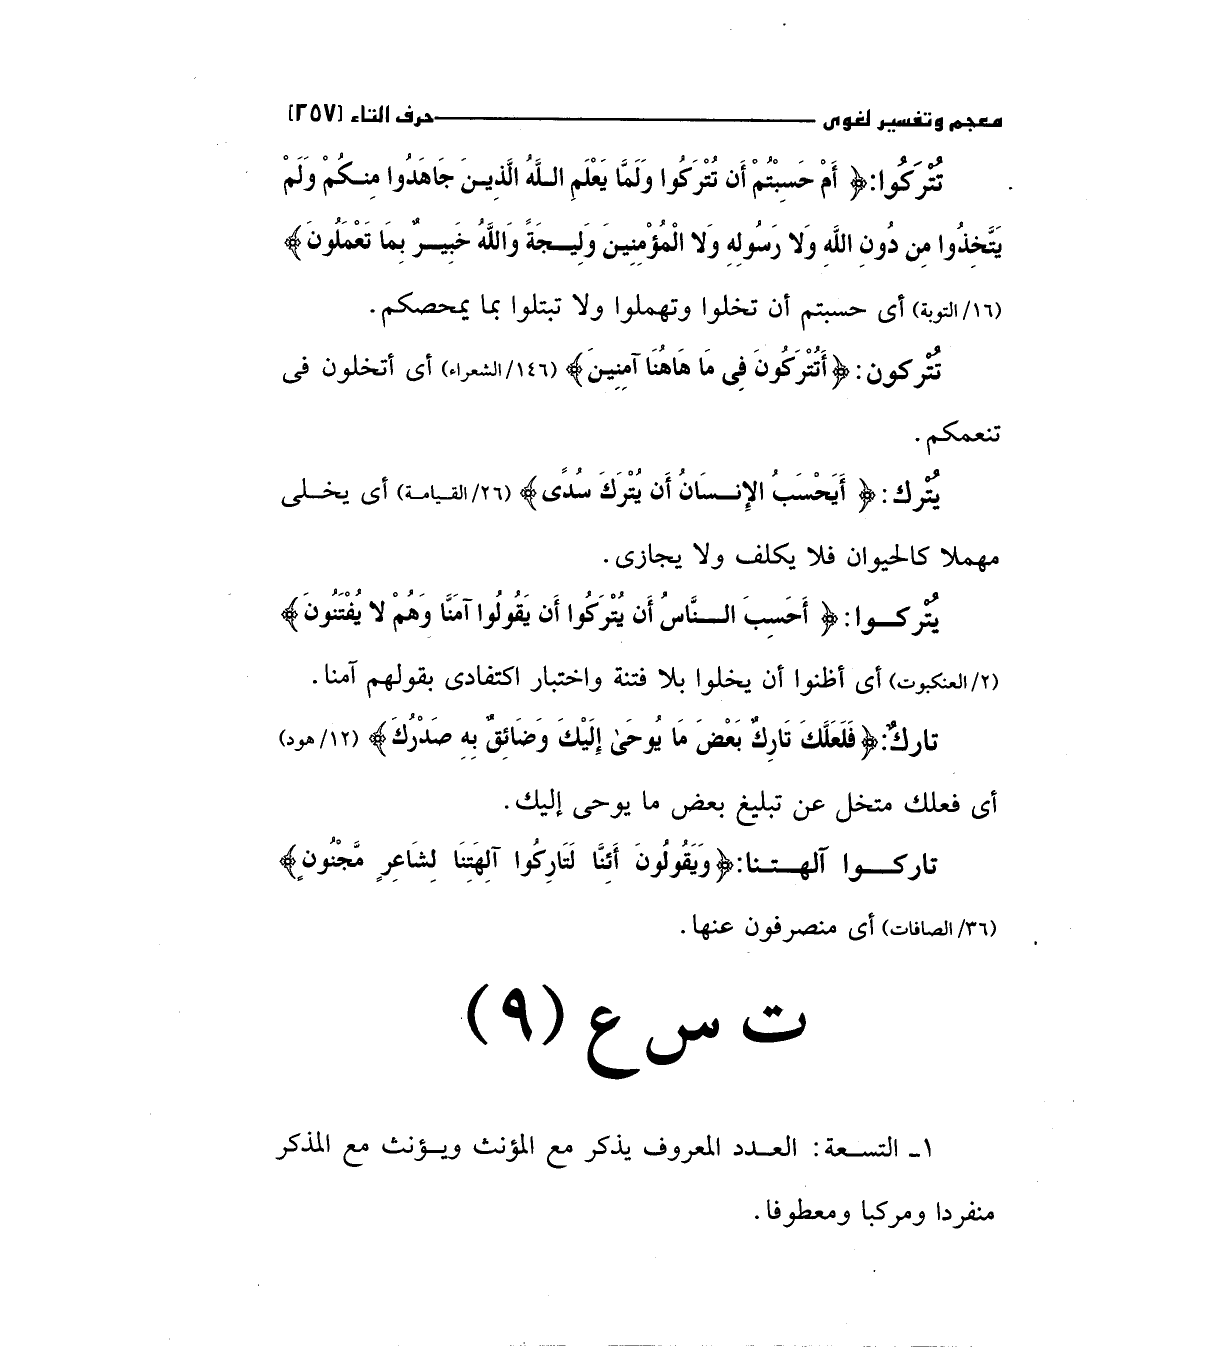 معجم وتفسير لغوى ــــــ حرف التاء [٢٥٧]
تُتْرَكُوا: ﴿ أَمْ حَسِبْتُمْ أَن تُتْرَكُوا وَلَمَّا يَعْلَمِ اللَّهُ الَّذِينَ جَاهَدُوا مِنكُمْ وَلَمْ
يَتَّخِذُوا مِن دُونِ اللَّهِ وَلا رَسُولِهِ وَلا الْمُؤْمِنِينَ وَلِيجَةً وَاللَّهُ خَبِيرٌ بِمَا تَعْمَلُونَ ﴾
(١٦/ التوبة) أى حسبتم أن تخلوا وتهملوا ولا تبتلوا بما يمحصكم.
تُتْركون: ﴿ أَتُتْرَكُونَ فِي مَا هَاهُنَا آمِنِينَ ﴾ (١٤٦/ الشعراء) أى أتخلون فى
تنعمكم.
يُتْرك: ﴿ أَيَحْسَبُ الإِنسَانُ أَن يُتْرَكَ سُدًى ﴾ (٢٦/ القيامة) أى يخلى
مهملا كالحيوان فلا يكلف ولا يجازى.
يُتْركوا: ﴿ أَحَسِبَ النَّاسُ أَن يُتْرَكُوا أَن يَقُولُوا آمَنَّا وَهُمْ لا يُفْتَنُونَ ﴾
(٢/ العنكبوت) أى أظنوا أن يخلوا بلا فتنة واختبار اكتفادى بقولهم آمنا.
تاركٌ: ﴿ فَلَعَلَّكَ تَارِكٌ بَعْضَ مَا يُوحَىٰ إِلَيْكَ وَضَائِقٌ بِهِ صَدْرُكَ ﴾ (١٢/ هود)
أى فعلك متخل عن تبليغ بعض ما يوحى إليك.
تاركوا آلهتنا: ﴿ وَيَقُولُونَ أَئِنَّا لَتَارِكُوا آلِهَتِنَا لِشَاعِرٍ مَّجْنُونٍ ﴾
(٣٦/ الصافات) أى منصرفون عنها.
ت س ع (٩)
١ـ التسعة: العدد المعروف يذكر مع المؤنث ويؤنث مع المذكر
منفردا ومركبا ومعطوفا.